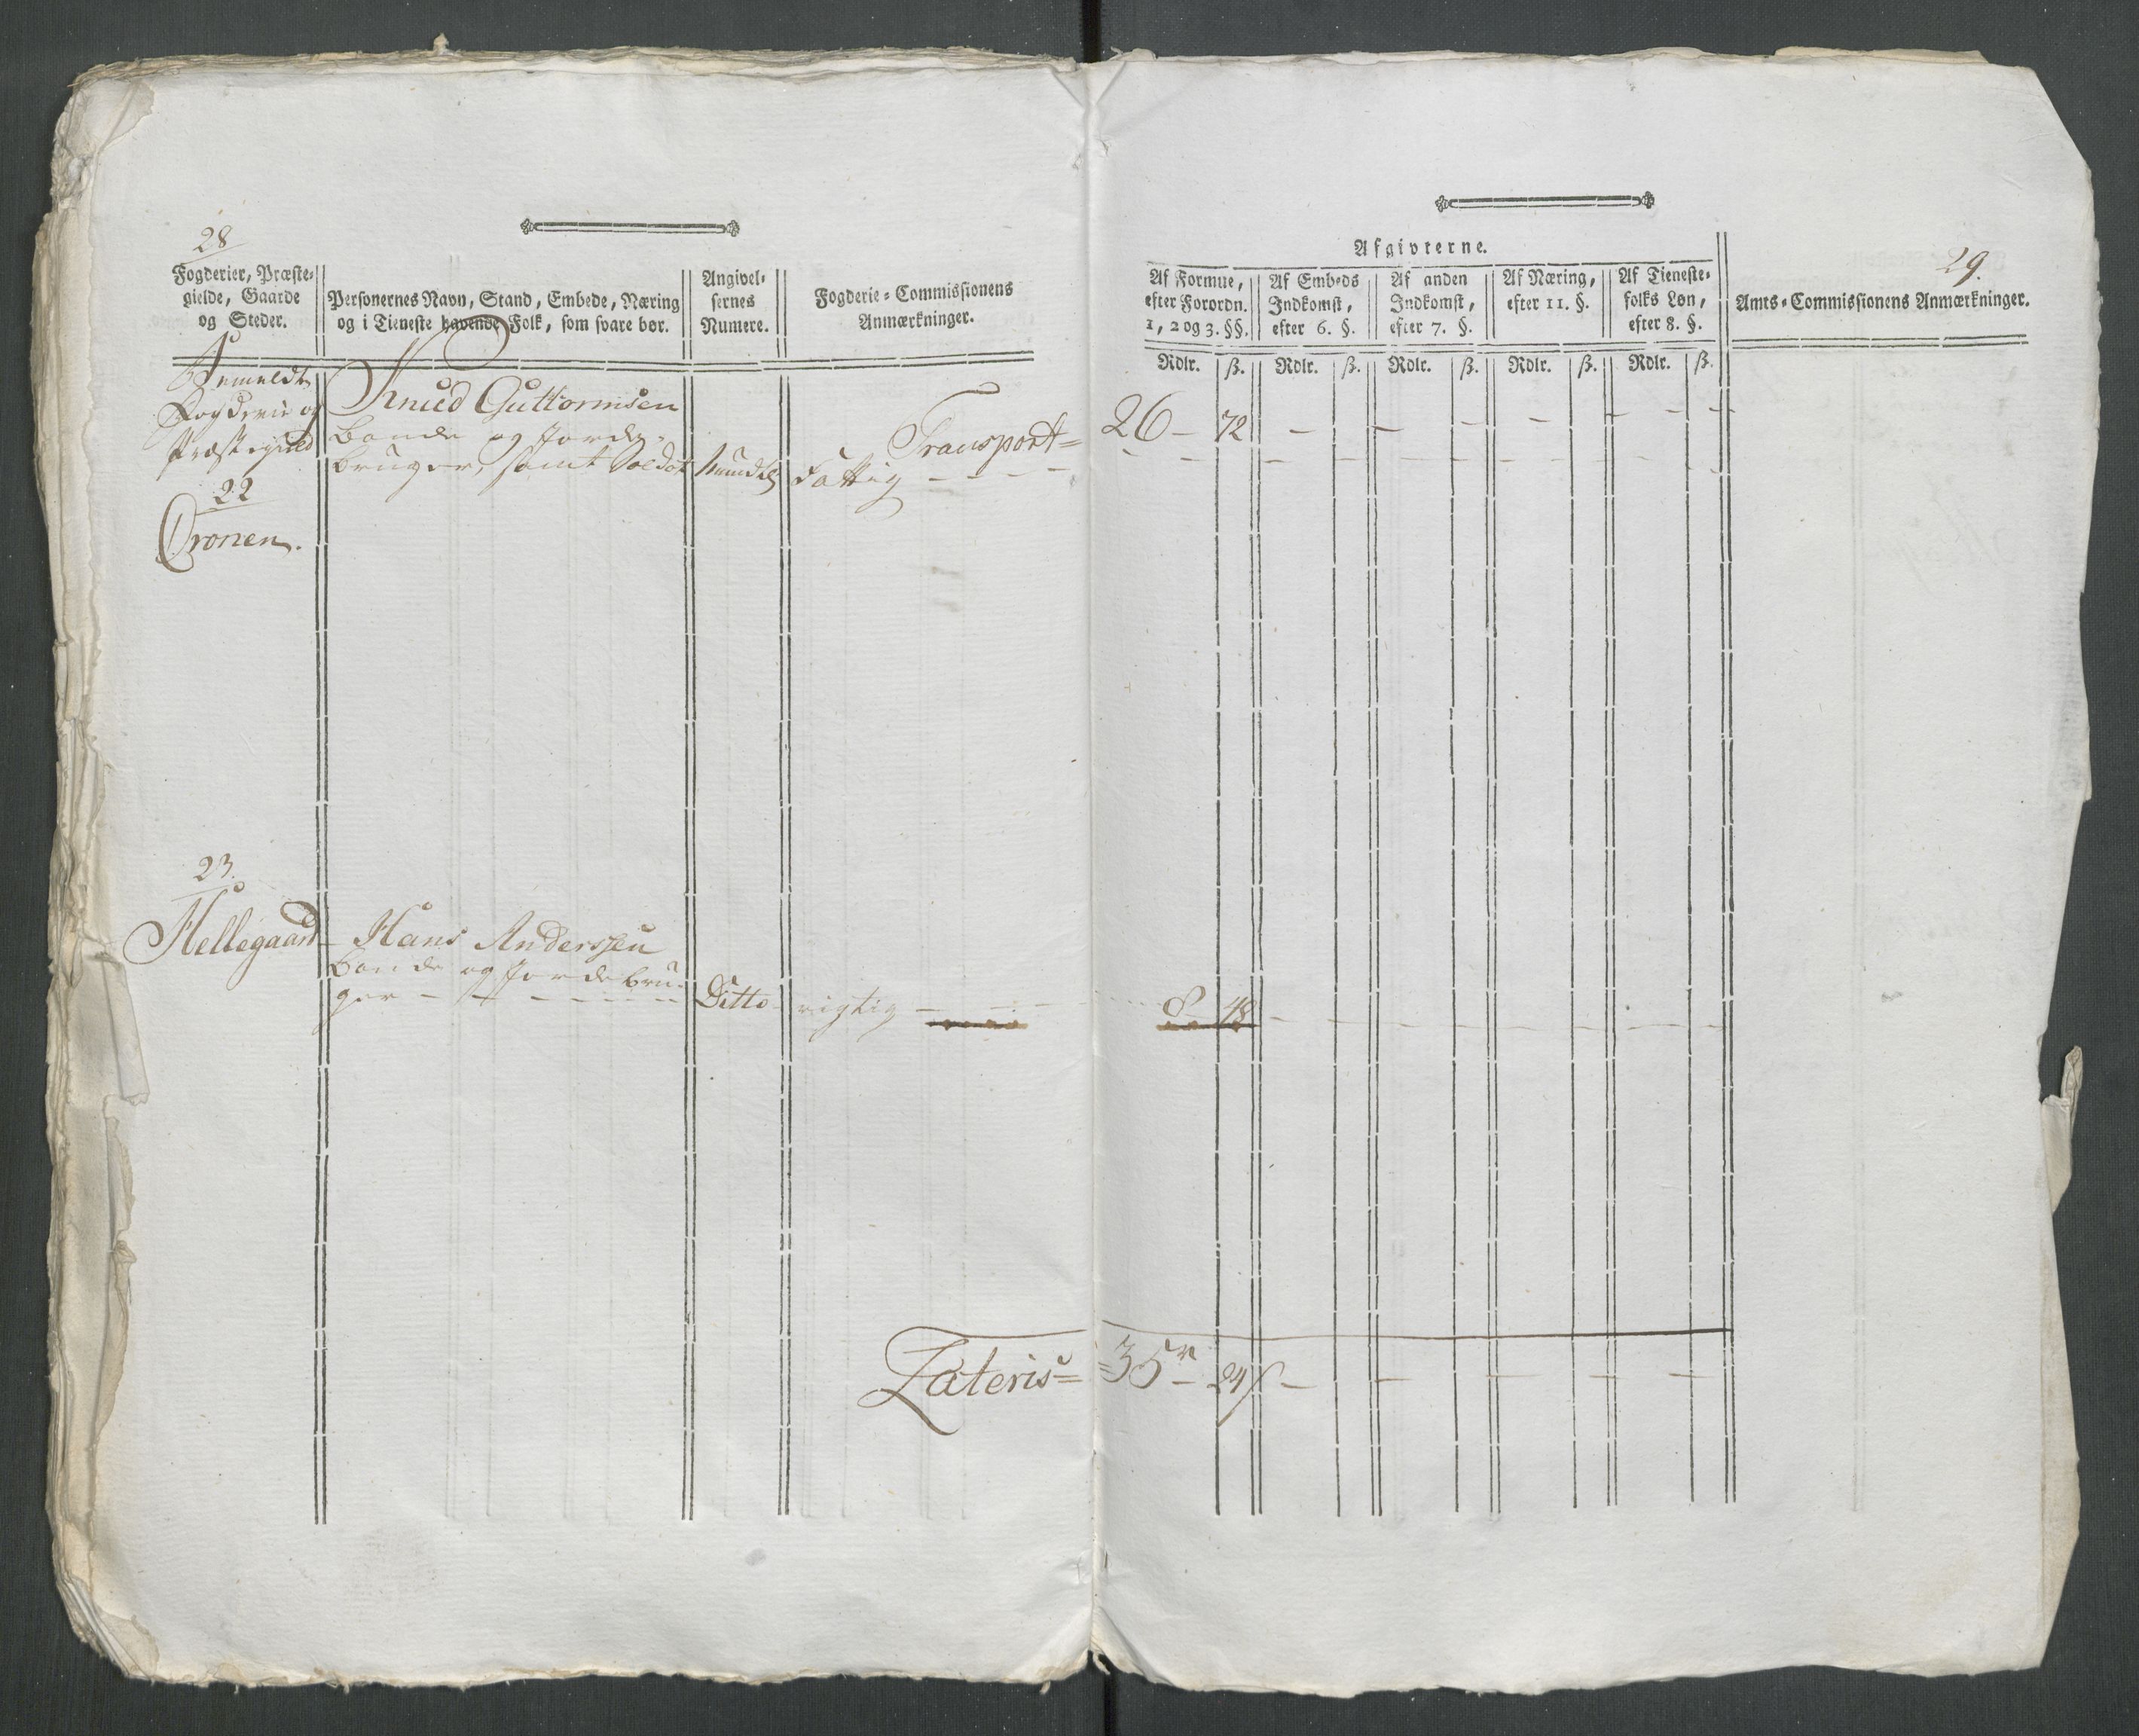 28
Fogderier, Præste-
gielde, Gaarde
og Steder.
Personernes Navn, Stand, Embede, Næring
og i Tieneste havende Folk, som svare bør.
Angivel-
sernes
Numere.
Fogderie-Commissionens
Anmærkninger.
Bemeldte
Fogderie og
Præstegield
22
Cronen.
Knud Guttormsen
Bonde og Jorde-
bruger, samt Soldat
Mundtlig
Transport=
Fattig - - - -
23.
Hellegaard
Hans Anderssen
Bonde og Jordebru-
ger - - - - - -
Ditto
rigtig - - -
Lateris=
29.
Afgivterne.
Af Formue,
efter Forordn.
1, 2 og 3. §§.
Af Embeds
Indkomst,
efter 6. §.
Af anden
Indkomst,
efter 7. §.
Af Næring,
efter 11. §.
Af Tieneste-
folks Løn,
efter 8. §.
Amts-Commissionens Anmærkninger.
Rdlr. ß. Rdlr. ß. Rdlr. ß. Rdlr. ß. Rdlr. ß.
26 - 72 - - - - - - -
8 - 48 - - - - - - - -
=35 - 24 ß - - - - -